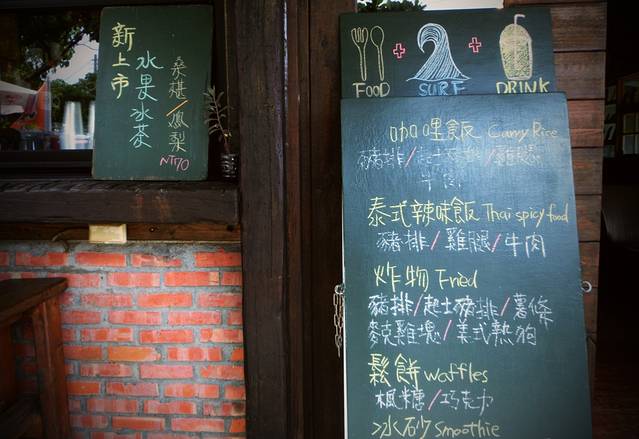 新上市
水果冰茶
桑椹/鳳梨
NT70
FOOD + SURF + DRINK
咖哩飯 Curry Rice
豬排/起士豬排/雞腿
牛肉
泰式辣味飯 Thai spicy food
豬排/雞腿/牛肉
炸物 Fried
豬排/起士豬排/薯條
麥克雞塊/美式熱狗
鬆餅 waffles
楓糖/巧克力
冰砂 Smoothie